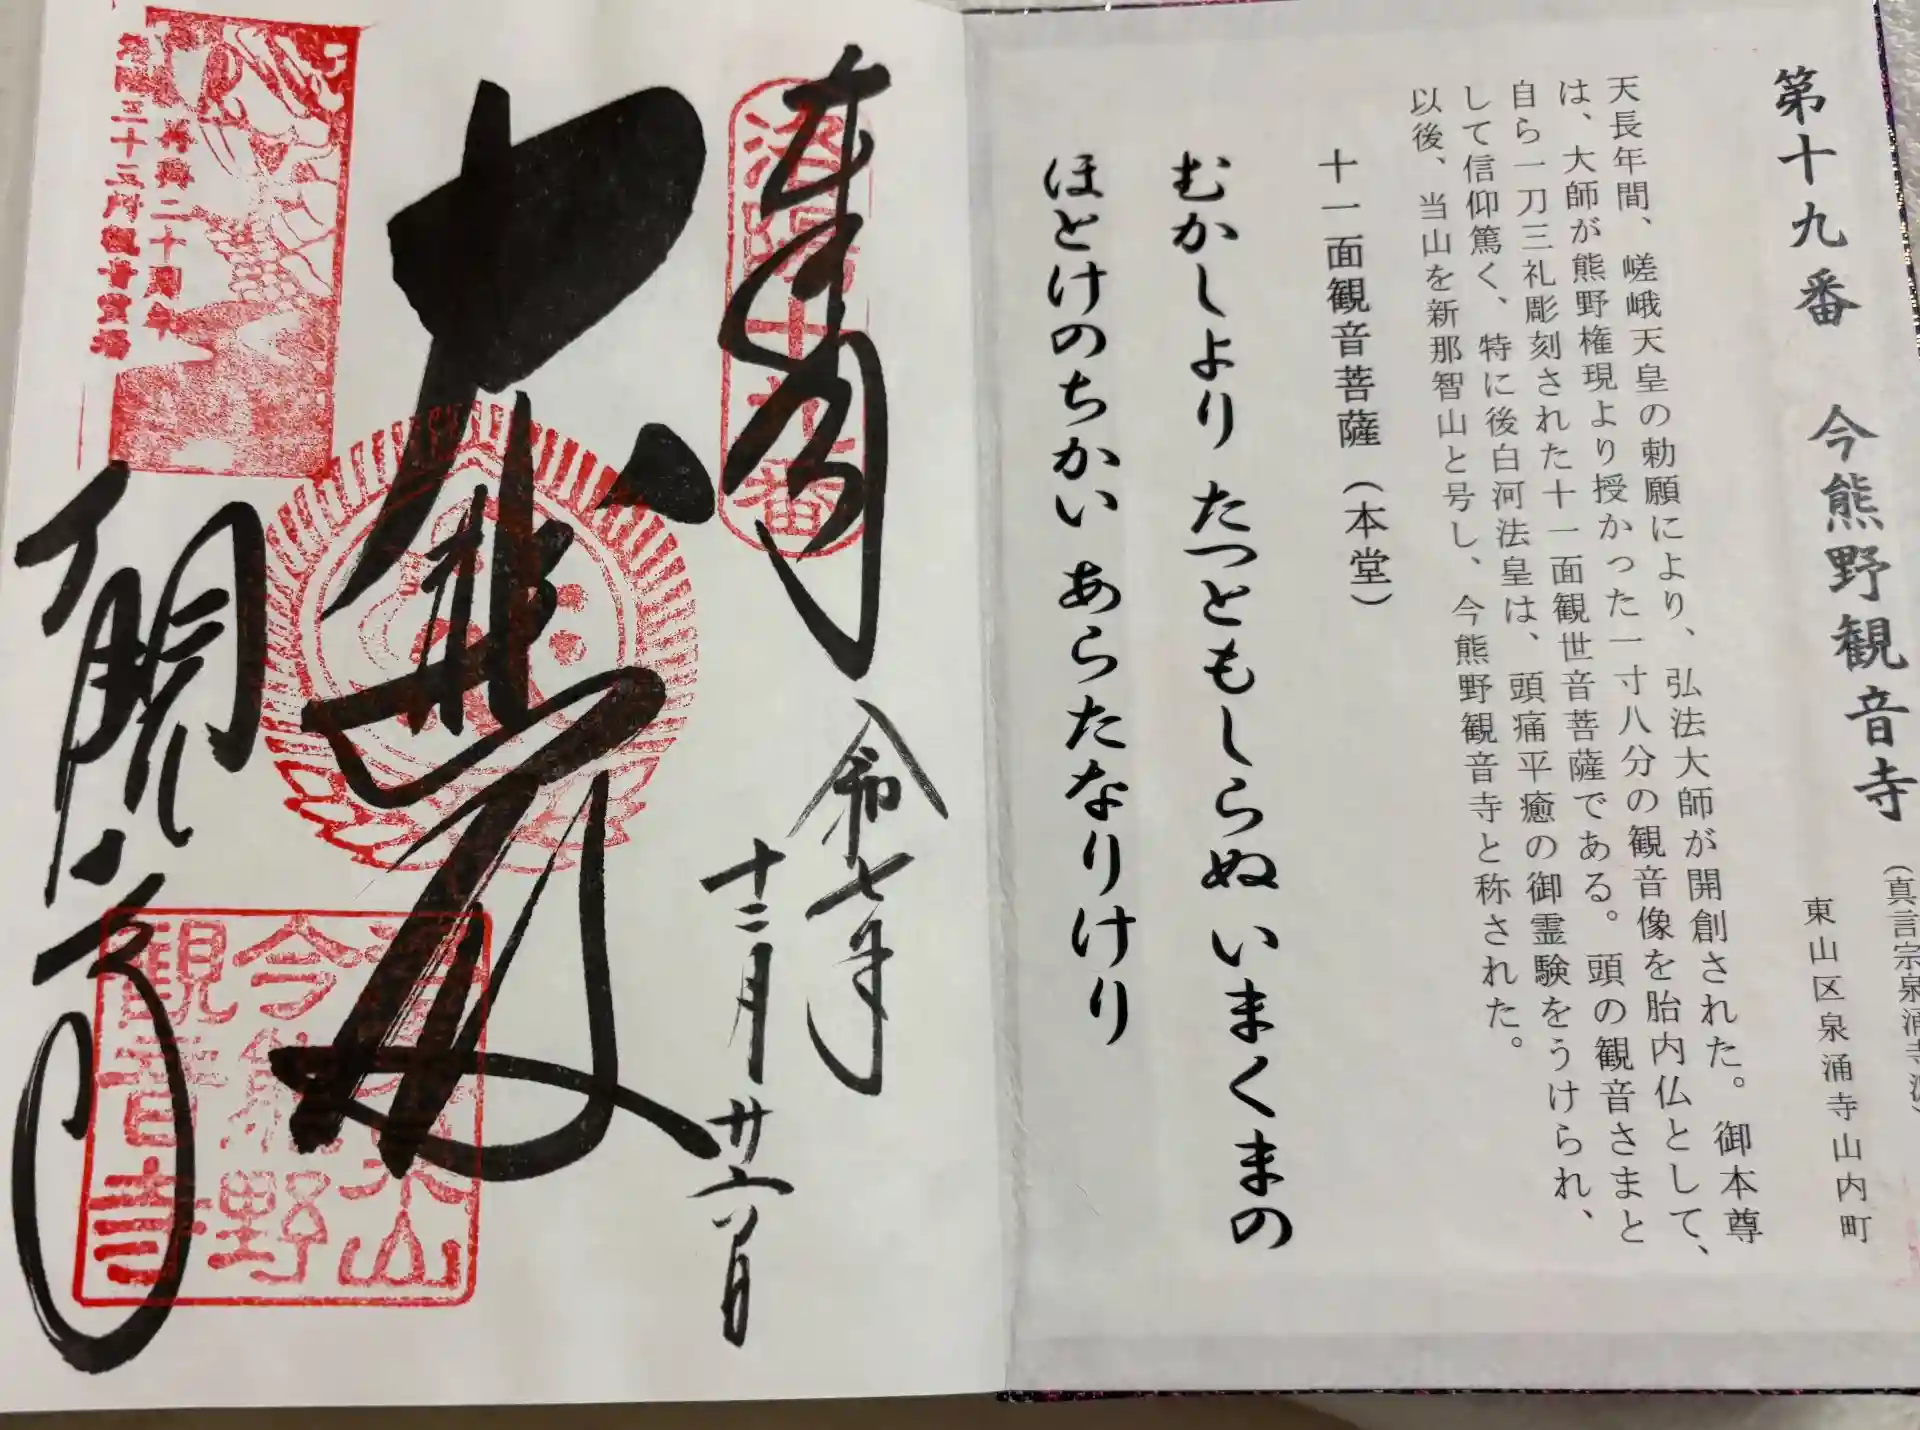 第十九番 今熊野観音寺
（真言宗泉涌寺派）
東山区泉涌寺山内町
天長年間、嵯峨天皇の勅願により、弘法大師が開創された。御本尊
は、大師が熊野権現より授かった一寸八分の観音像を胎内仏として、
自ら一刀三礼彫刻された十一面観世音菩薩である。頭の観音さまと
して信仰篤く、特に後白河法皇は、頭痛平癒の御霊験をうけられ、
以後、当山を新那智山と号し、今熊野観音寺と称された。
十一面観音菩薩（本堂）
むかしより たつともしらぬ いまくまの
ほとけのちかい あらたなりけり
奉拝
洛陽十九番
令和七年
十二月廿六日
大悲殿
観音寺
新那智山
今熊野
観音寺
再興二十周年
洛陽三十三所観音霊場